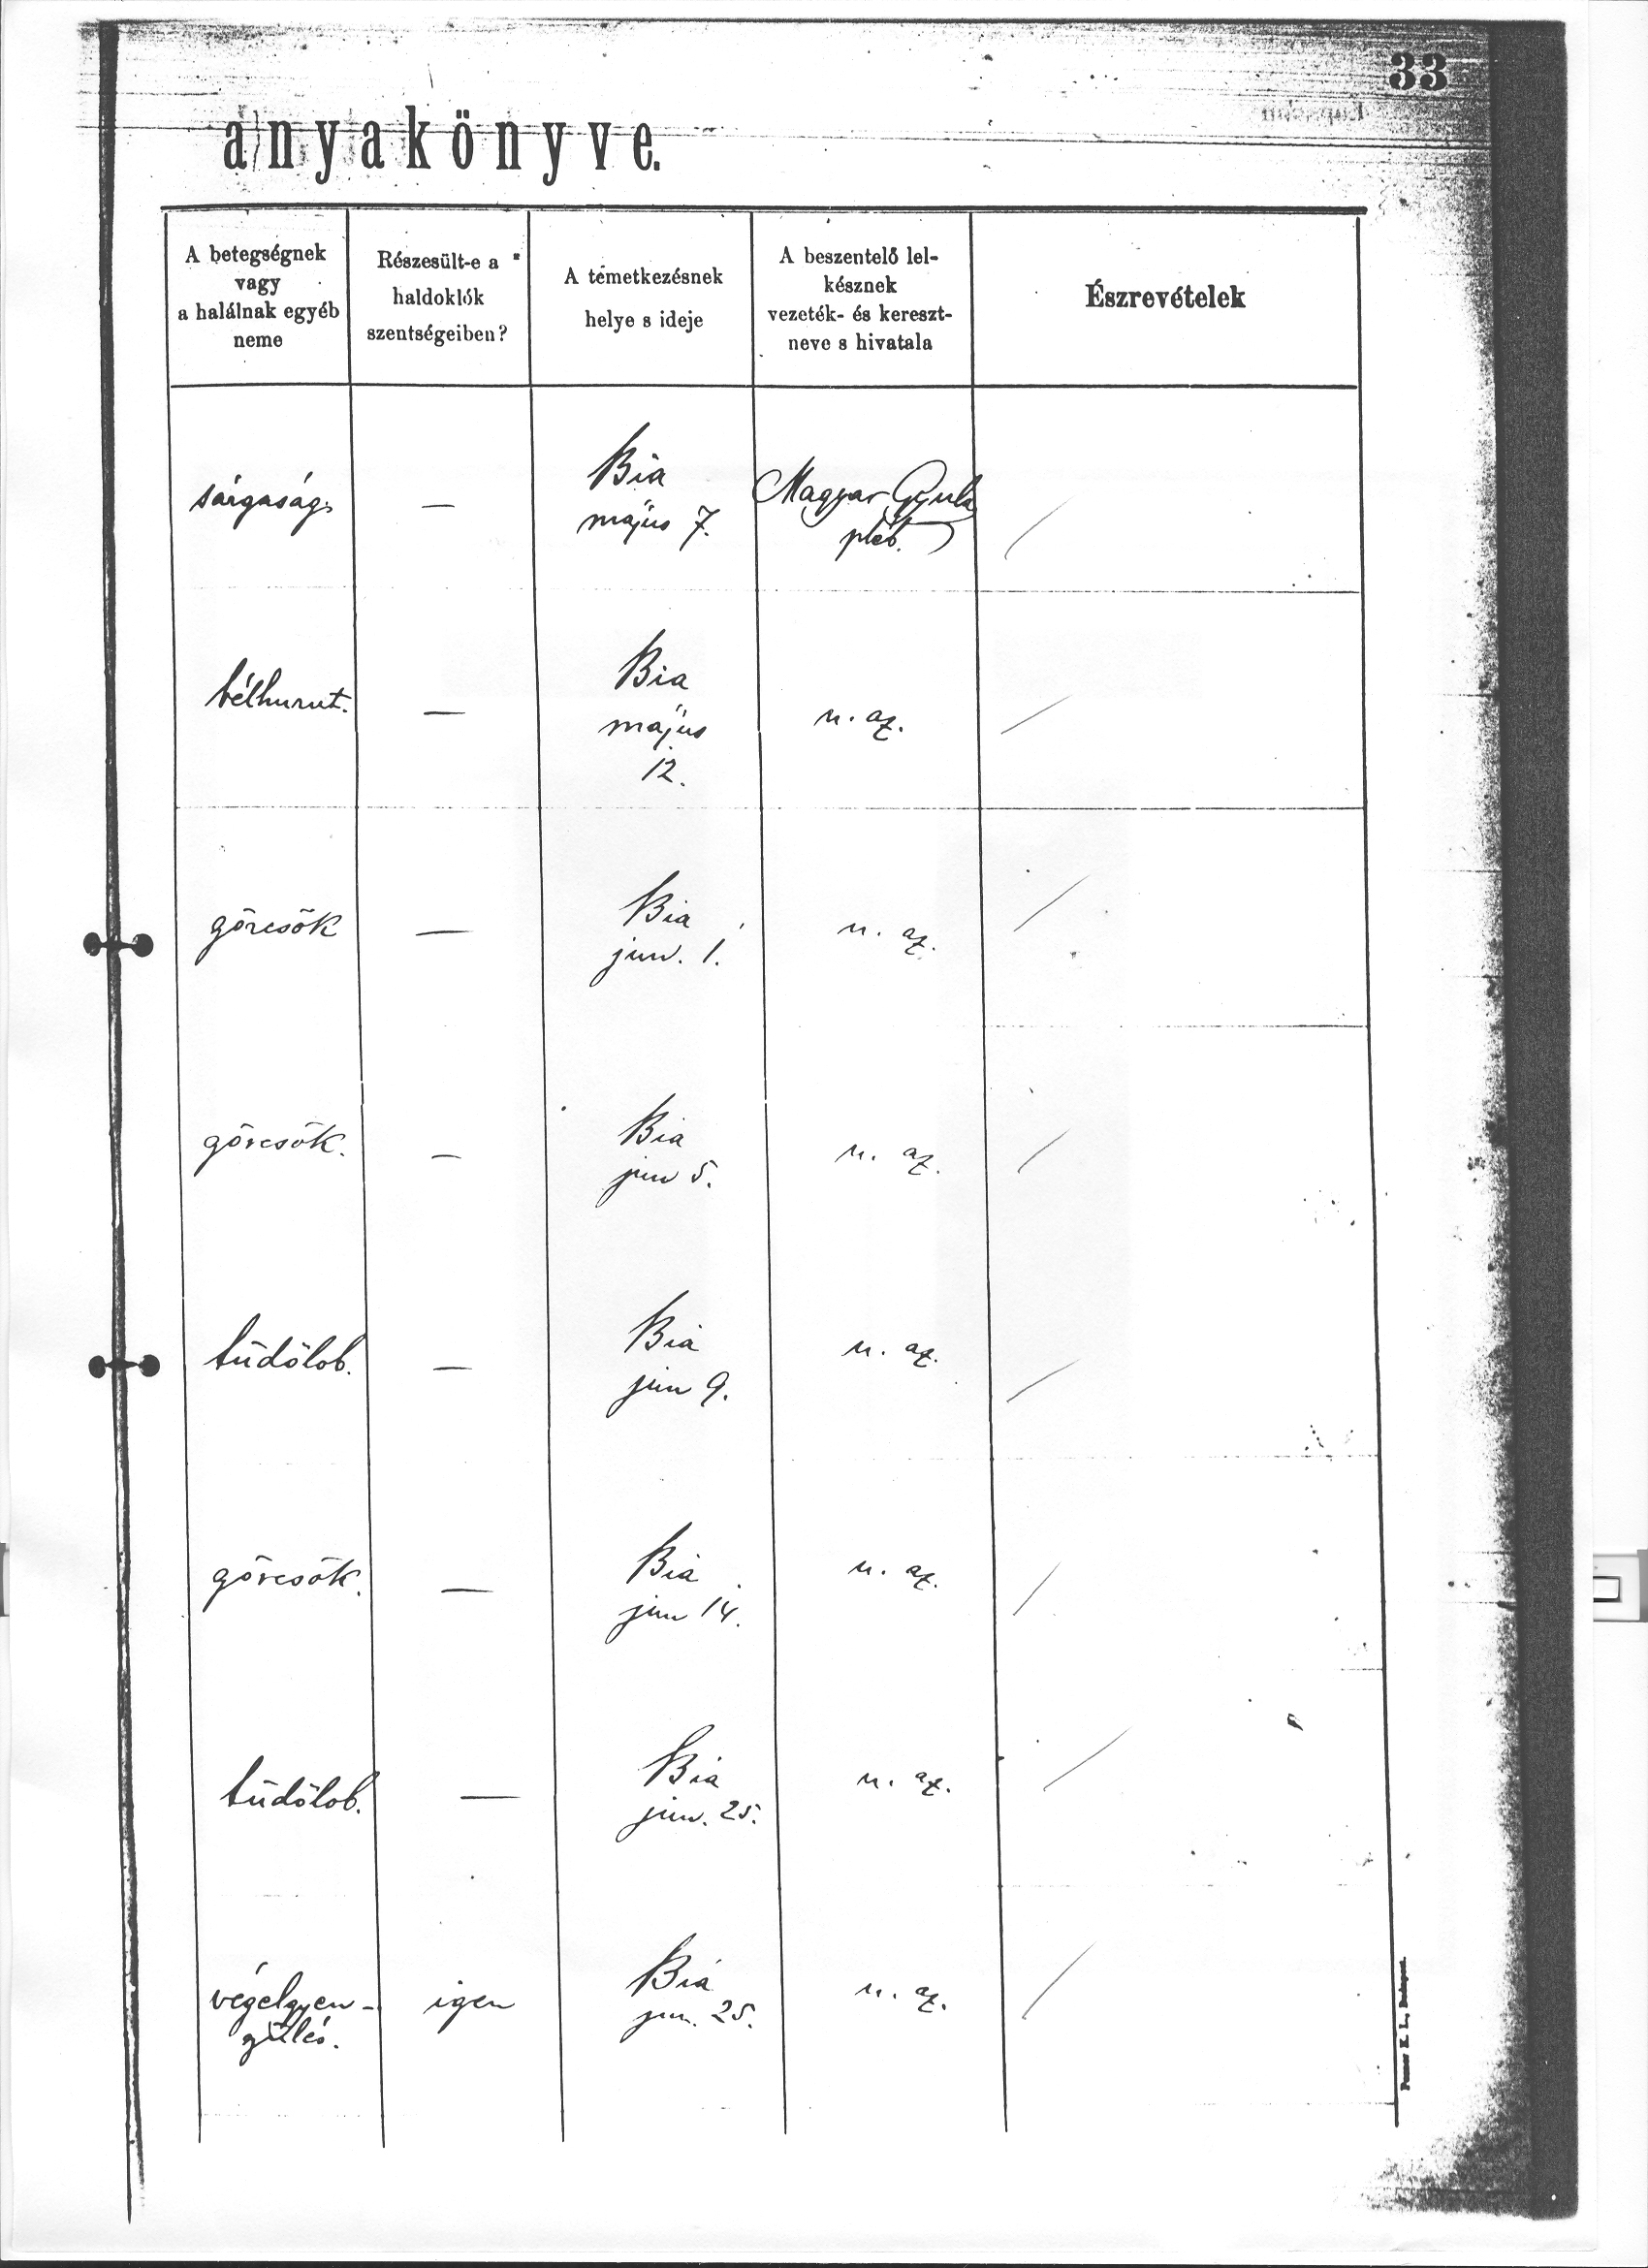 33
anyakönyve.
A betegségnek
vagy
a halálnak egyéb
neme
Részesült-e a
haldoklók
szentségeiben?
A temetkezésnek
helye s ideje
A beszentelő lel-
késznek
vezeték- és kereszt-
neve s hivatala
Észrevételek
sárgaság
—
Bia
május 7.
Magyar Gyula
pléb.
/
bélhurut.
—
Bia
május
12.
u. az.
/
görcsök
—
Bia
jun. 1.
u. az.
/
görcsök.
—
Bia
jun 5.
u. az.
/
tüdőlob.
—
Bia
jun 9.
u. az.
/
görcsök.
—
Bia
jun 14.
u. az.
/
tüdőlob.
—
Bia
jun. 25.
u. az.
/
végelgyen-
gülés.
igen
Bia
jun. 25.
u. az.
/
Posner K. L., Budapest.